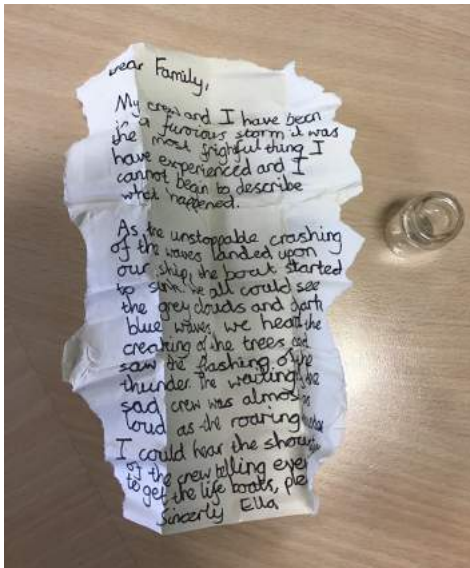 Dear Family,
My crew and I have been
in a furious storm it was
the most frightful thing I
have experienced and I
cannot begin to describe
what happened.
As the unstoppable crashing
of the waves landed upon
our ship, the boat started
to sink. We all could see
the grey clouds and dark
blue waves, we heard the
creaking of the trees and
saw the flashing of the
thunder. The waiting of the
sad crew was almost as
loud as the roaring
I could hear the
of the crew telling
to get the life boats,
Sincerly Ella